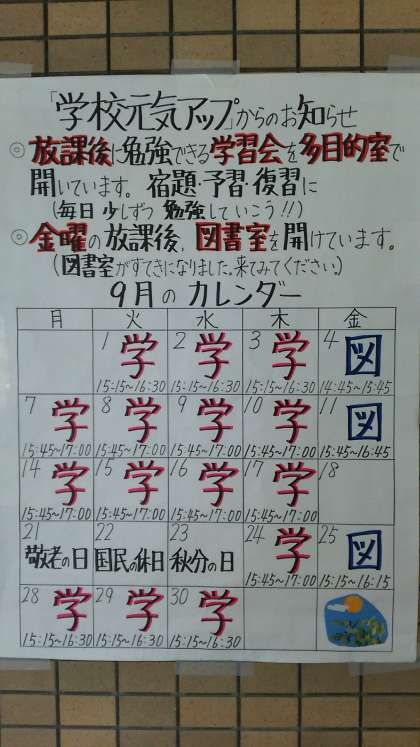 「学校元気アップ」からのお知らせ
◎放課後に勉強できる学習会を多目的室で
開いています。宿題・予習・復習に
(毎日少しずつ勉強していこう!!)
◎金曜の放課後、図書室を開けています。
(図書室がすてきになりました。来てみてください。)
9月のカレンダー
月 火 水 木 金
1 学 2 学 3 学 4 図
15:15~16:30 15:15~16:30 15:15~16:30 14:45~15:45
7 学 8 学 9 学 10 学 11 図
15:45~17:00 15:45~17:00 15:45~17:00 15:45~17:00 15:45~16:45
14 学 15 学 16 学 17 学 18
15:45~17:00 15:45~17:00 15:45~17:00 15:45~17:00
21 22 23 24 学 25 図
敬老の日 国民の休日 秋分の日
15:45~17:00 15:15~16:15
28 学 29 学 30 学
15:15~16:30 15:15~16:30 15:15~16:30